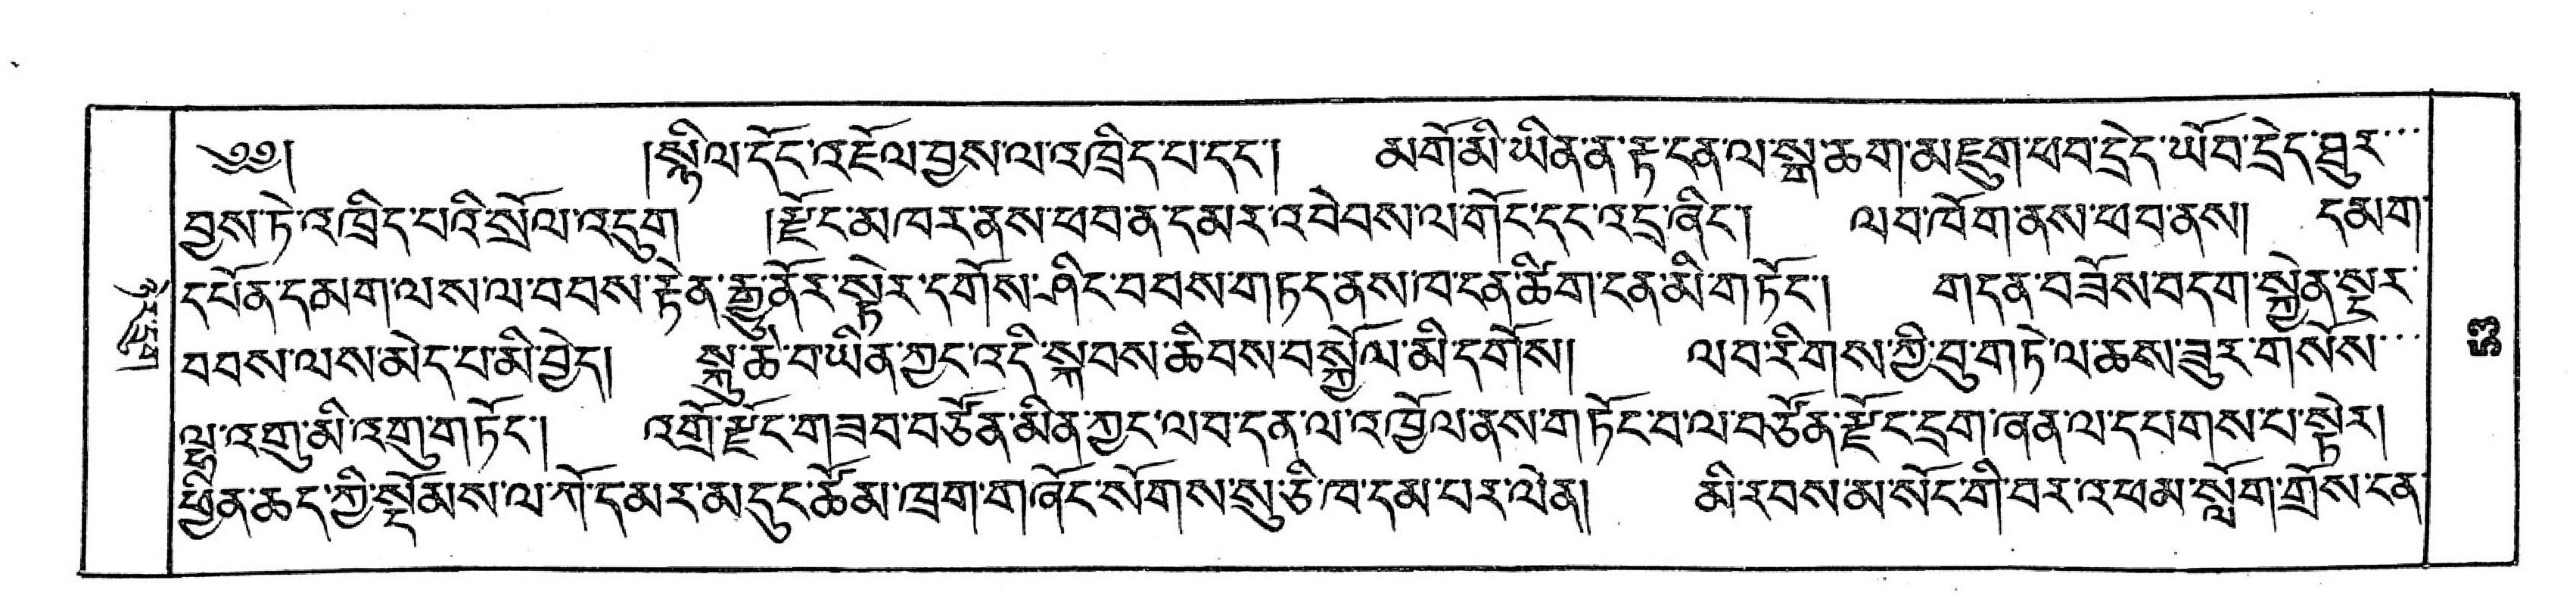 ༄༅། །སྙིལ་དོང་འཇོལ་བྱས་ལ་འཁྲིད་པ་དང་། མགོ་མི་ཡིན་ན་རྟ་ངན་ལ་སྒ་ཆག་མཇུག་ཕབ་དྲེད་ཡོབ་དྲེད་ཐུར་་་
བྱས་ཏེ་འཁྲིད་པའི་སྲོལ་འདུག །རྫོང་མཁར་ནས་ཕབ་ན་དམར་འབེབས་ལ་གོང་དང་འདྲ་ཞིང་། ལབ་ཁོག་ནས་ཕབ་ནས། དམག་
དཔོན་དམག་ལས་ལ་བབས་རྟེན་རྒྱུ་ནོར་སྟེར་དགོས་ཤིང་བབས་གཏད་ནས་ཁ་ངན་ཚིག་ངན་མི་གཏོང་། གདན་བཟོས་བདག་སྐྱེན་སྔར་
བབས་ལས་མེད་པ་མི་བྱེད། སྐུ་ཆེ་བ་ཡིན་ཀྱང་འདི་སྐབས་ཆིབས་བསྐྱོལ་མི་དགོས། ལབ་རིགས་ཀྱི་བུ་གཏེ་ལ་ཆས་ཟུར་གསོས་་་
ལྟ་འགྲུ་མི་འགྲུ་གཏོང་། འགྲོ་རྫོང་གཟབ་བཙོན་མིན་ཀྱང་ལབ་དན་ལ་འཁྱོལ་ནས་གཏོང་བ་ལ་བཙོན་རྫོང་དྲག་ཞན་ལ་དཔགས་པ་སྟེར།
ཕྱིན་ཆད་ཀྱི་སྡོམས་ལ་ཀོ་དམར་མདུང་ཚོམ་ཁྲག་གཞོང་སོགས་སུ་ཅི་ཁ་དམ་པར་ལེན། མི་རབས་མ་སོང་གི་བར་འཕམ་སློག་གྲོས་ངན་